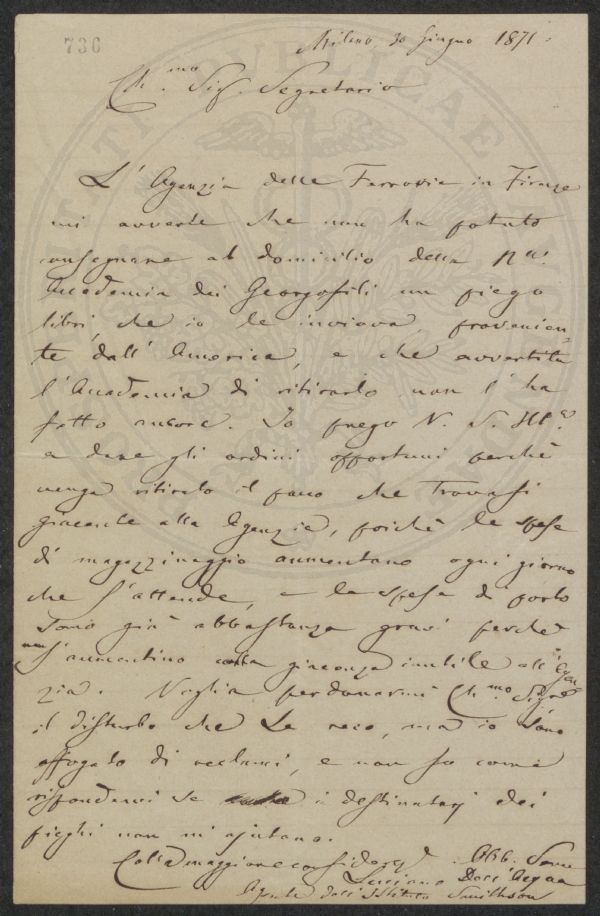 730
Milano, 30 Giugno 1871.
Ch.mo Sig. Segretario
L'Agenzia delle Ferrovie in Firenze
mi avverte che non ha potuto
consegnare al domicilio della R.le
Accademia dei Georgofili un piego
libri, che io le inviava, provenien-
te dall'America, e che avvertita
l'Accademia di ritirarlo non l'ha
fatto ancora. Io prego V. S. Ill.a
a dare gli ordini opportuni perchè
venga ritirato il pacco che trovasi
giacente alla Agenzia, poichè le spese
di magazzinaggio aumentano ogni giorno
che s'attende, e le spese di porto
sono già abbastanza gravi perchè
non s'aumentino colla giacenza inutile all'Agen
zia. Voglia perdonarmi Ch.mo Sigre
il disturbo che Le reco, ma io sono
affogato di reclami, e non so come
rispondervi se i destinatarj dei
pieghi non mi ajutano.
Colla maggiore considerz. Obb. Servo
Luciano Dell'Acqua
Agente dell'Istituto Smithson